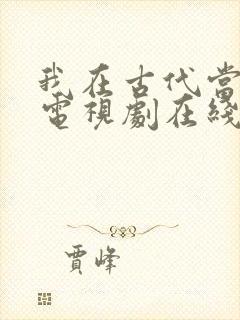 我在古代當
電視劇在綫
賈峰